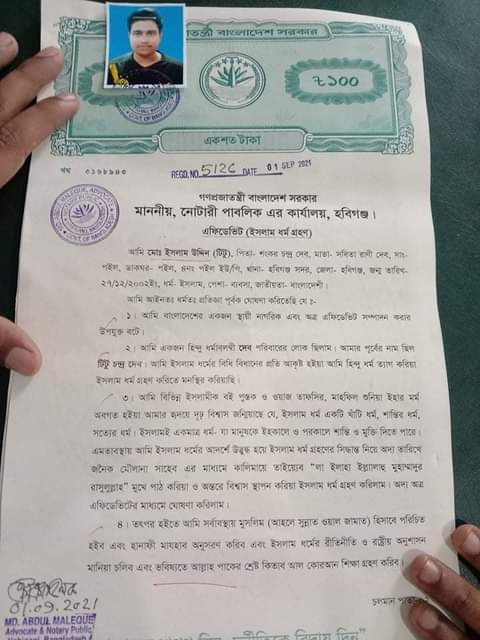 গণপ্রজাতন্ত্রী বাংলাদেশ সরকার
৳১০০
একশত টাকা
খখ ৩১৬৮৯৪৩
REGD. NO. 5126 DATE 01 SEP 2021
গণপ্রজাতন্ত্রী বাংলাদেশ সরকার
মাননীয়, নোটারী পাবলিক এর কার্যালয়, হবিগঞ্জ।
এফিডেভিট (ইসলাম ধর্ম গ্রহণ)
আমি মোঃ ইসলাম উদ্দিন (টিটু), পিতা- শংকর চন্দ্র দেব, মাতা- সবিতা রাণী দেব, সাং-
পইল, ডাকঘর- পইল, ৪নং পইল ইউ/পি, থানা- হবিগঞ্জ সদর, জেলা- হবিগঞ্জ, জন্ম তারিখ-
২৭/১২/২০০২ইং, ধর্ম- ইসলাম, পেশা- ব্যবসা, জাতীয়তা- বাংলাদেশী।
আমি আইনতঃ ধর্মতঃ প্রতিজ্ঞা পূর্বক ঘোষণা করিতেছি যে :-
১। আমি বাংলাদেশের একজন স্থায়ী নাগরিক এবং অত্র এফিডেভিট সম্পাদন করার
উপযুক্ত বটে।
২। আমি একজন হিন্দু ধর্মাবলম্বী দেব পরিবারের লোক ছিলাম। আমার পূর্বের নাম ছিল
টিটু চন্দ্র দেব। আমি ইসলাম ধর্মের বিধি বিধানের প্রতি আকৃষ্ট হইয়া আমি হিন্দু ধর্ম ত্যাগ করিয়া
ইসলাম ধর্ম গ্রহণ করিতে মনস্থির করিয়াছি।
৩। আমি বিভিন্ন ইসলামীক বই পুস্তক ও ওয়াজ তাফসির, মাহফিল শুনিয়া ইহার মর্ম
অবগত হইয়া আমার হৃদয়ে দৃঢ় বিশ্বাস জন্মিয়াছে যে, ইসলাম ধর্ম একটি খাঁটি ধর্ম, শান্তির ধর্ম,
সত্যের ধর্ম। ইসলামই একমাত্র ধর্ম- যা মানুষকে ইহকালে ও পরকালে শান্তি ও মুক্তি দিতে পারে।
এমতাবস্থায় আমি ইসলাম ধর্মের আদর্শে উদ্বুদ্ধ হয়ে ইসলাম ধর্ম গ্রহণের সিদ্ধান্ত নিয়ে অদ্য তারিখে
জনৈক মৌলানা সাহেব এর মাধ্যমে কালিমায়ে তাইয়্যেব "লা ইলাহা ইল্লাল্লাহু মুহাম্মাদুর
রাসুলুল্লাহ" মুখে পাঠ করিয়া ও অন্তরে বিশ্বাস স্থাপন করিয়া ইসলাম ধর্ম গ্রহণ করিলাম। অদ্য অত্র
এফিডেভিটের মাধ্যমে ঘোষণা করিলাম।
৪। তৎপর হইতে আমি সর্বাবস্থায় মুসলিম (আহলে সুন্নাত ওয়াল জামাত) হিসাবে পরিচিত
হইব এবং হানাফী মাযহাব অনুসরণ করিব এবং ইসলাম ধর্মের রীতিনীতি ও রাষ্ট্রীয় অনুশাসন
মানিয়া চলিব এবং ভবিষ্যতে আল্লাহ পাকের শ্রেষ্ট কিতাব আল কোরআন শিক্ষা গ্রহণ করিব।
চলমান পাতা-২
01.09.2021
MD. ABDUL MALEQUE
Advocate & Notary Public